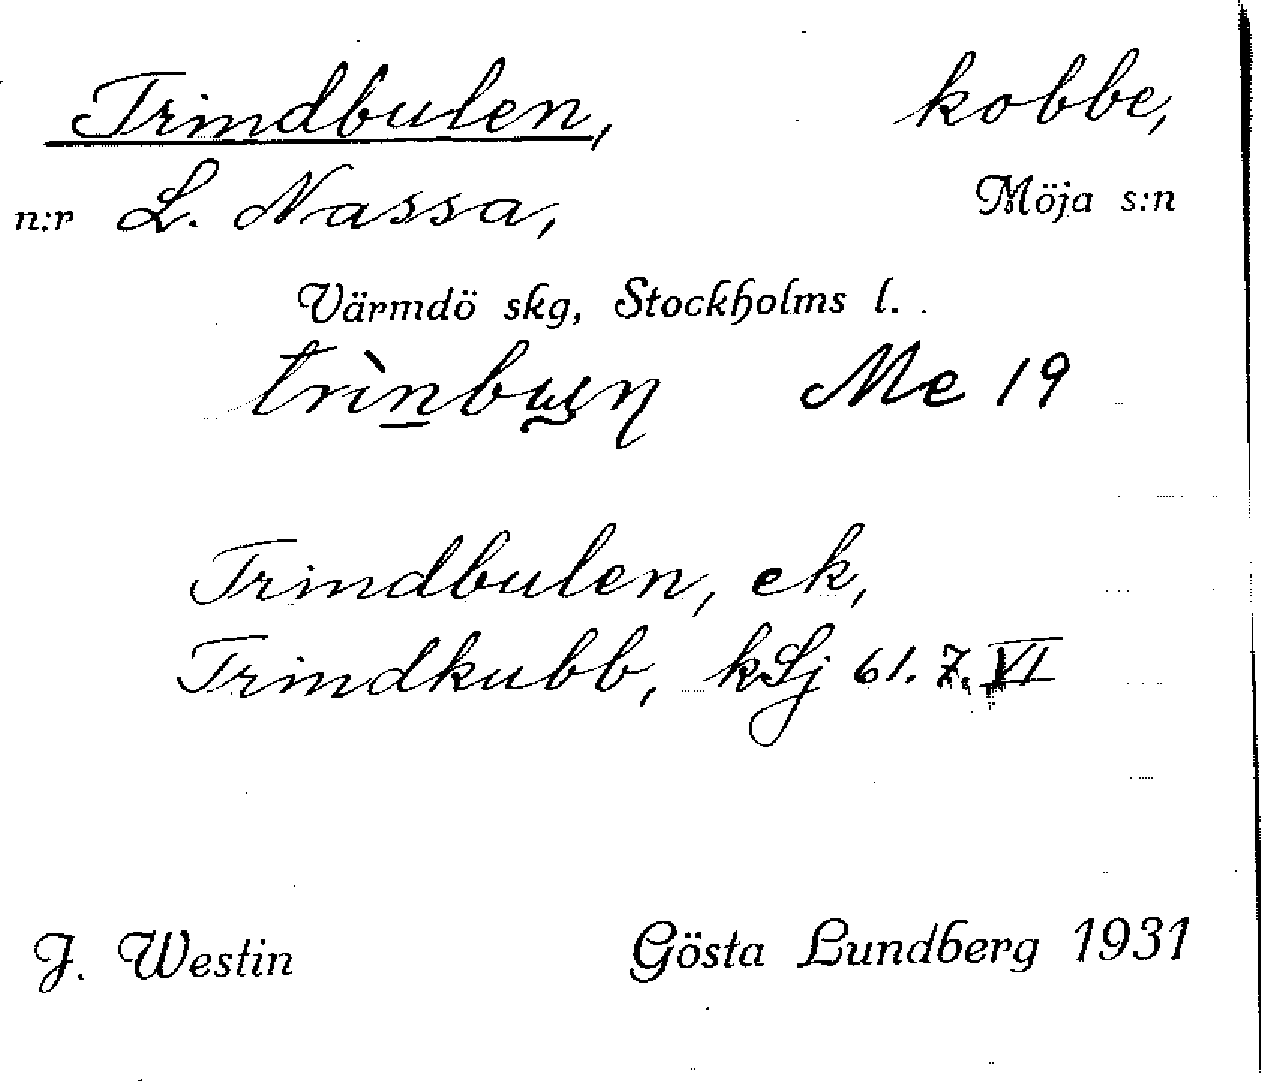 Trindbulen, kobbe,
n:r L. Nassa, Möja s:n
Värmdö skg, Stockholms l.
Me 19
Trindbulen, ek,
Trindkubb, kSj 61. 7. VI
J. Westin Gösta Lundberg 1931